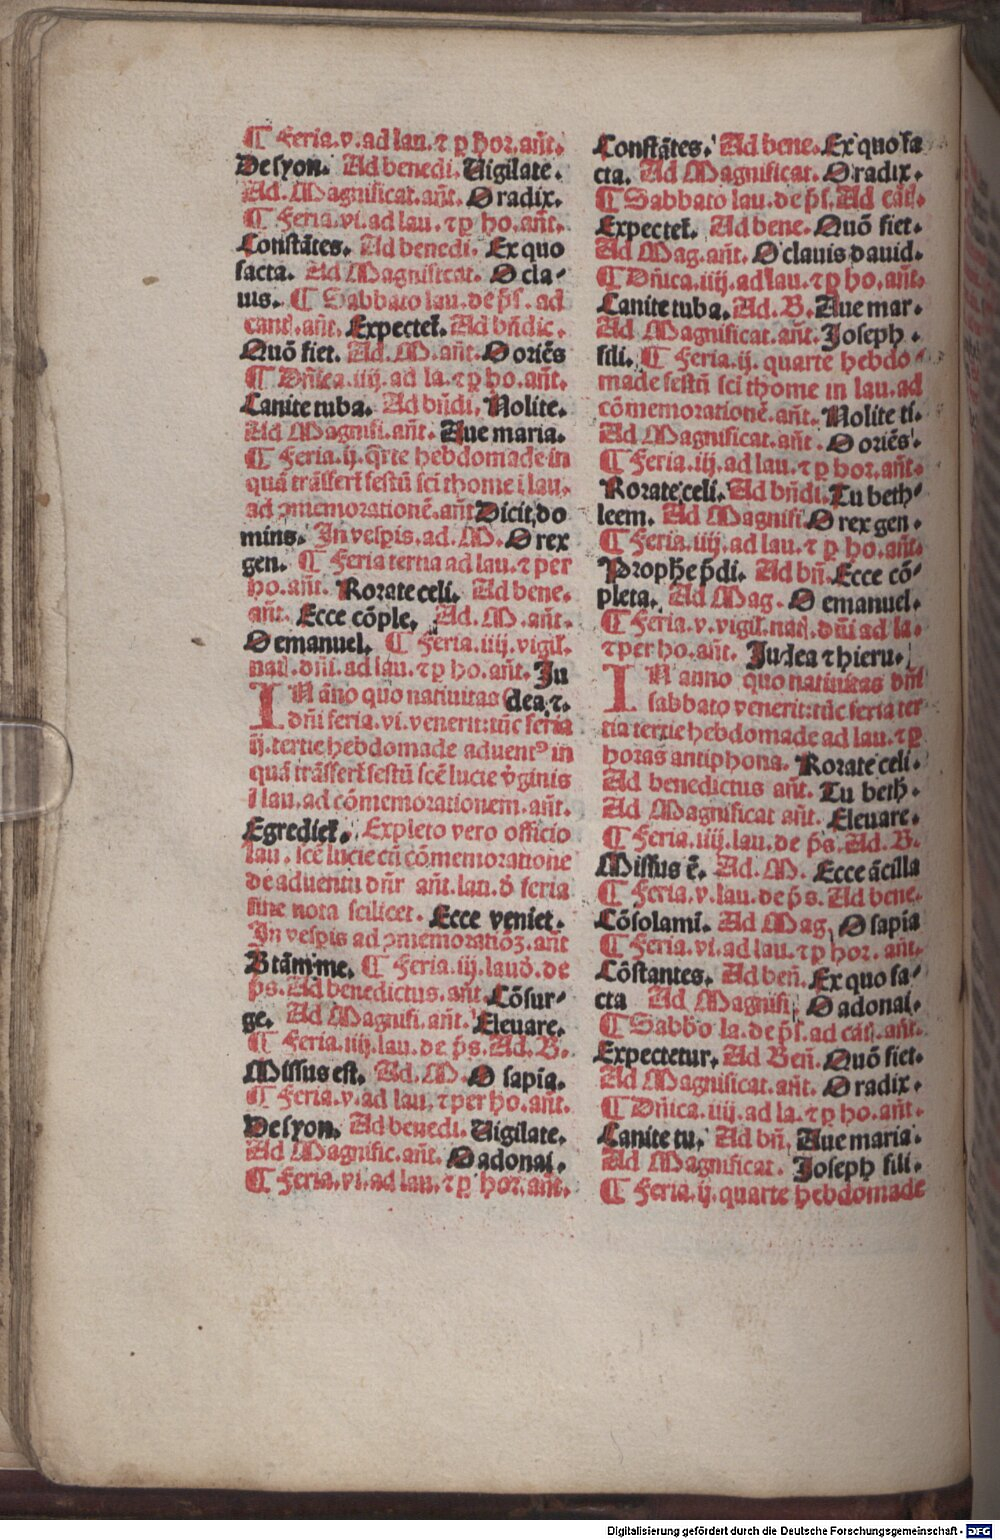 ¶ Feria.v.ad lau.⁊ ꝑ hor.añt.
De syon. Ad benedi. Uigilate.
Ad. Magnificat.añt. O radix.
¶ Feria.vi.ad lau.⁊ꝑ ho.añt.
Constātes. Ad benedi. Ex quo
facta. Ad Magnificat. O cla⸗
uis. ¶ Sabbato lau.de p̄s. ad
cant.añt. Expectet̄. Ad bn̄dic.
Quō fiet. Ad.M.añt. O oriēs
¶ Dn̄ica.iiij.ad la.⁊ꝑ ho.añt.
Canite tuba. Ad bn̄di. Nolite.
Ad Magnifi.añt. Aue maria.
¶ Feria.ij.q̄rte hebdomade in
quā trāsfert̄ festū sci thome i lau.
ad ꝯmemorationē.añt Dicit do
mins. In vesp̄is.ad.M. O rex
gen. ¶ Feria tertia ad lau.⁊ per
ho.añt. Rorate celi. Ad bene.
añt. Ecce cōple. Ad.M.añt.
O emanuel. ¶ Feria.iiij.vigil̄.
nat̄.dn̄i.ad lau.⁊ꝑ ho.añt. Ju
IN āno quo natiuitas (dea.⁊.
dn̄i feria.vi.venerit:tūc feria
ij.tertie hebdomade aduentꝰ in
quā trāsfert̄ festū scē lucie v̄ginis
ī lau.ad cōmemorationem.añt.
Egrediet̄. Expleto vero officio
lau.scē lucie cū cōmemoratione
de aduentu dn̄r añt.lau.d̄ feria
sine nota scilicet. Ecce veniet.
In vesp̄is ad ꝯmemoratiōꝫ.añt
B tām me. ¶ Feria.iij.laud̄.de
p̄s.Ad benedictus.añt Cōsur⸗
ge. Ad Magnifi.añt. Eleuare.
¶ Feria.iiij.lau.de p̄s.Ad.B.
Missus est. Ad.M. O sapia.
¶ Feria.v.ad lau.⁊ per ho.añt.
De syon. Ad benedi. Uigilate.
Ad Magnific.añt. O adonai.
¶ Feria.vi.ad lau.⁊ ꝑ hor.añt.
Constātes. Ad bene. Ex quo fa
cta. Ad Magnificat. O radix.
¶ Sabbato lau.de p̄s.Ad cāt̄.
Expectet̄. Ad bene. Quō fiet.
Ad Mag.añt. O clauis dauid.
¶ Dn̄ica.iiij.ad lau.⁊ꝑ ho.añt.
Canite tuba. Ad. B. Aue mar.
Ad Magnificat.añt. Joseph .
fili. ¶ Feria.ij. quarte hebdo⸗
made festū sci thome in lau.ad
cōmemorationē.añt. Nolite ti.
Ad Magnificat.añt . O oriēs.
¶ Feria.iij.ad lau.⁊ ꝑ hor.añt.
Rorate celi. Ad bn̄di. Tu beth⸗
leem. Ad Magnifi O rex gen.
¶ Feria.iiij.ad lau.⁊ ꝑ ho.añt.
Prophe p̄di. Ad bn̄. Ecce cō⸗
pleta. Ad Mag. O emanuel.
¶ Feria.v.vigil̄.nat̄.dn̄i ad la.
⁊ per ho.añt. Judea ⁊ hieru.
IN anno quo natiuitas dn̄i
sabbato venerit:tūc feria ter
tia tertie hebdomade ad lau.⁊ꝑ
horas antiphona. Rorate celi.
Ad benedictus añt. Tu beth.
Ad Magnificat añt. Eleuare.
¶ Feria.iiij.lau.de p̄s.Ad.B.
Missus ē. Ad.M. Ecce ācilla
¶ Feria.v.lau.de p̄s. Ad bene.
Cōsolami. Ad Mag. O sapia
¶ Feria.vi.ad lau.⁊ꝑ hor.añt.
Cōstantes. Ad ben̄. Ex quo fa⸗
cta Ad Magnifi. O adonai.
¶ Sabb̄o la.de p̄s.ad cāt̄.añt.
Expectetur. Ad Ben̄. Quō fiet.
Ad Magnificat.añt. O radix.
¶ Dn̄ica.iiij.ad la.⁊ ꝑ ho.añt.
Canite tu. Ad bn̄. Aue maria.
Ad Magnificat. Joseph fili.
¶ Feria.ij.quarte hebdomade
Digitalisierung gefördert durch die Deutsche Forschungsgemeinschaft - DFG